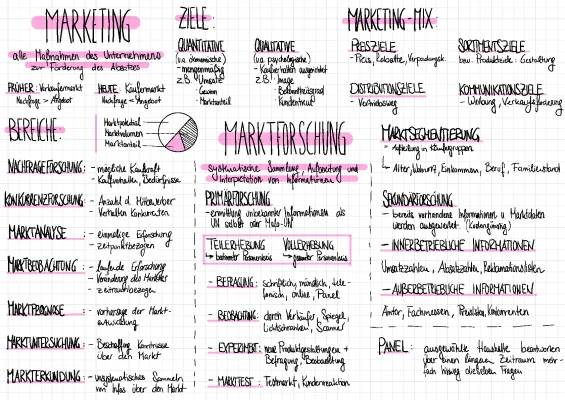 MARKETING
alle Maßnahmen des Unternehmens
zur Förderung des Absatzes
FRÜHER: Verkäufermarkt
Nachfrage > Angebot
HEUTE: Käufermarkt
Nachfrage < Angebot
ZIELE:
QUANTITATIVE
(v.a. ökonomische)
- mengenmäßig
z.B. Umsatz
- Gewinn
- Marktanteil
QUALITATIVE
(v.a. psychologische)
- Kaufverhalten ausgerichtet
z.B. Image
- Bekanntheitsgrad
- Kundentreue
MARKETING-MIX:
PREISZIELE
- Preis, Rabatte,
SORTIMENTSZIELE
bzw. Produktziele: Gestaltung
DISTRIBUTIONSZIELE
- Vertriebsweg
KOMMUNIKATIONSZIELE
- Werbung, Verkaufsförderung
BEREICHE:
Marktpotential
Marktvolumen
Marktanteil
NACHFRAGEFORSCHUNG: - mögliche Kaufkraft
- Kaufverhalten, Bedürfnisse
KONKURRENZFORSCHUNG: - Anzahl d. Mitbewerber
- Verhalten Konkurrenten
MARKTANALYSE: - einmalige Erforschung
- zeitpunktbezogen
MARKTBEOBACHTUNG: - laufende Erforschung
- Veränderung des Marktes
- zeitraumbezogen
MARKTPROGNOSE - Vorhersage der Markt-
entwicklung
MARKTUNTERSUCHUNG: - Beschaffung Kenntnisse
über den Markt
MARKTERKUNDUNG: - unsystematisches Sammeln
von Infos über den Markt
MARKTFORSCHUNG
systematische Sammlung, Aufbereitung und
Interpretation von Informationen
PRIMÄRFORSCHUNG
- ermittlung unbekannter Informationen als
UN selbst oder Mafo-UN
TEILERHEBUNG
↳ bestimmter Personenkreis
VOLLERHEBUNG
↳ gesamter Personenkreis
- BEFRAGUNG: schriftlich, mündlich, tele-
fonisch, online, Panel
- BEOBACHTUNG: durch Verkäufer, Spiegel,
Lichtschranken, Scanner
- EXPERIMENT: neue Produktgestaltungen +
Befragung, Beobachtung
- MARKTTEST: Testmarkt, Kundenreaktion
MARKTSEGMENTIERUNG
- Aufteilung in Käufergruppen
↳ Alter, Wohnung, Einkommen, Beruf, Familienstand
SEKUNDÄRFORSCHUNG
- bereits vorhandene Informationen u. Marktdaten
werden ausgewertet (kostengünstig)
- INNERBETRIEBLICHE INFORMATIONEN
Umsatzzahlen, Absatzzahlen, Reklamationslisten
- AUßERBETRIEBLICHE INFORMATIONEN
Ämter, Fachmessen, Preislisten Konkurrenten
PANEL: ausgewählte Haushalte beantworten
über einen längeren Zeitraum mehr-
fach hinweg dieselben Fragen